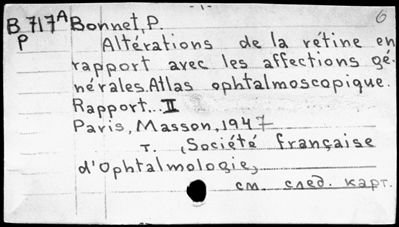 6
B 717A Bonnet, P.
P Altérations de la rétine en
rapport avec les affections gé-
nérales. Atlas ophtalmoscopique.
Rapport... II
Paris, Masson, 1947
т. , Société française
d'Ophtalmologie,
см. след. карт.